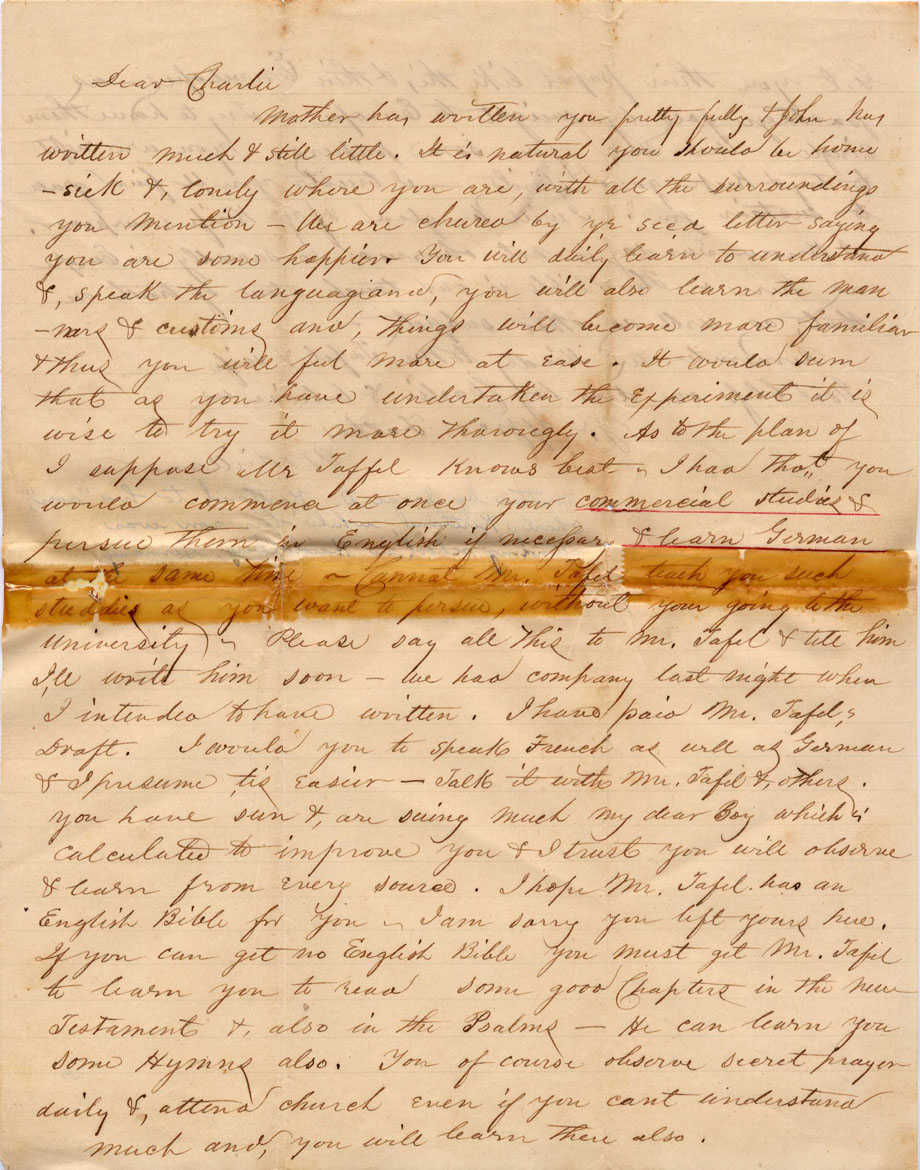 Dear Charlie
Mother has written you pretty fully & John has
written much & still little. It is natural you should be home
-sick &, lonely where you are, with all the surroundings
you mention - We are chered by yr secd letter saying
you are some happier. You will daily learn to understand
&, speak the language and, you will also learn the man
-ners & customs and, things will become more familiar
& thus you will feel more at ease. It would seem
that as you have undertaken the experiment it is
wise to try it more thorougly. As to the plan of
I suppose Mr Taffel knows best - I had thot you
would commence at once your commercial studies &
persue them in English if necessar & learn German
at same time - Cannot Mr. Tafel teach you such
studdies as you want to persue, without your going to the
university - Please say all this to Mr. Tafel & tell him
I'll write him soon - We had company last night when
I intended to have written. I have paid Mr. Tafel,s
Draft. I would you to speak French as well as German
& I presume tis easier - Talk it with Mr. Tafel &, others.
you have seen &, are seeing much my dear Boy which is
calculated to improve you & I trust you will observe
& learn from every source. I hope Mr. Tafel has an
English Bible for you - I am sorry you left yours here.
If you can get no English Bible you must get Mr. Tafel
to learn you to read some good Chapters in the new
Testament &, also in the Psalms - He can learn you
some Hymns also. You of course observe secret prayer
daily &, attend church even if you cant understand
much and, you will learn there also.